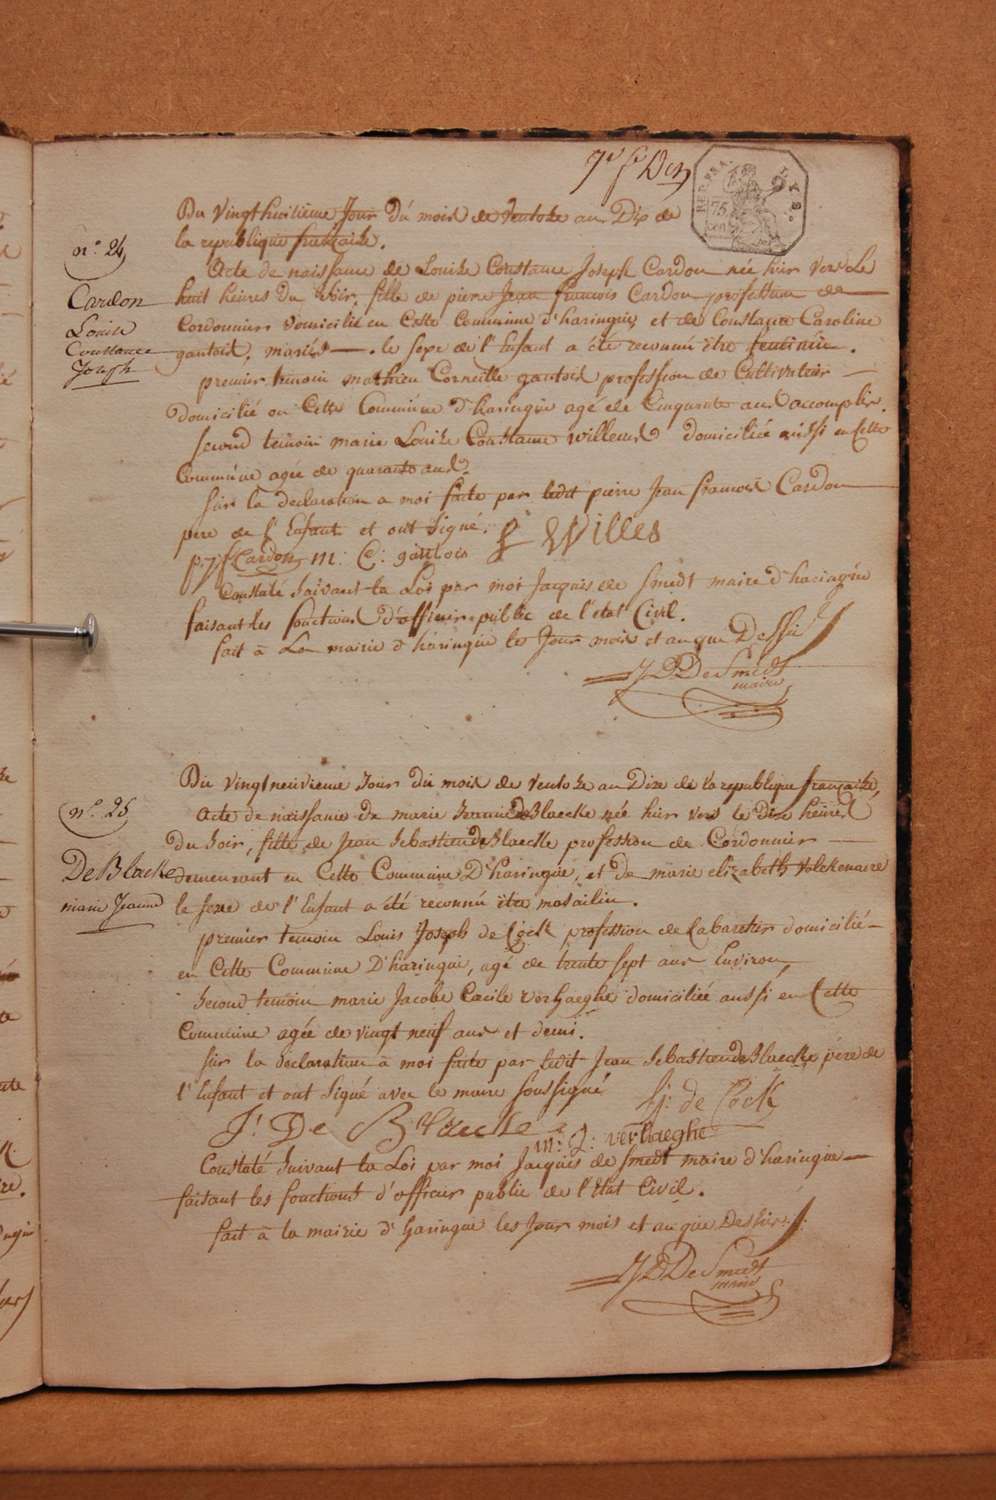 REP. FRA.
75
cen
Du vingt huitieme Jour du mois de ventose an Dix de
la republique française.
n.° 24
Cardon
Louise
Constance
Joseph
Acte de naissance de Louise Constance Joseph Cardon née hier vers le
huit heures du soir, fille de pierre Jean francois Cardon profession de
Cordonnier domicilié en Cette Commune d'haringue, et de Constance Caroline
gantois. mariés —. le sexe de l'Enfant a été reconnu être feminin.
premier temoin mathieu Corneille gantois profession de Cultivateur
domicilié en Cette Commune d'haringue agé de Cinquante ans accomplis.
second temoin marie Louise Constance Willens domiciliée aussi en Cette
Commune agée de quarante ans.
sur la declaration a moi faite par ledit pierre Jean francois Cardon
pere de l'Enfant et ont signé. Willes
p. j f Cardon m: C: gantois
Constaté suivant la Loi par moi Jacques de Smedt maire d'haringue
faisant les fonctions d'officier public de l'etat Civil.
fait à La mairie d'haringue les Jour mois et an que Dessu
De Smedt
maire
Du vingt neuvieme Jour du mois de ventose an Dix de la republique française,
n.° 25
De Blaecke
marie Jeanne
Acte de naissance de marie Jeanne De Blaecke née hier vers le dix heures
du soir, fille de Jean Sebastien de Blaecke profession de Cordonnier
demeurant en Cette Commune D'haringue, et de marie elizabeth valckenaere
le sexe de l'Enfant a été reconnu être masculin.
premier temoin Louis Joseph de Cock profession de Cabaretier domicilié
en Cette Commune D'haringue, agé de trente sept ans Environ,
second temoin marie Jacobe Cecile verhaeghe domiciliée aussi en Cette
Commune agée de vingt neuf ans et demi.
sur la declaration à moi faite par ledit Jean Sebastien de Blaecke père de
l'Enfant et ont signé avec le maire soussigné
de Cock
J. De Blaecke
m: J: verhaeghe
Constaté suivant la Loi par moi Jacques de Smedt maire d'haringue
faisant les fonctions d'officier public de l'Etat Civil.
fait à la mairie d'haringue les Jour mois et an que Dessus.
De Smedt
maire